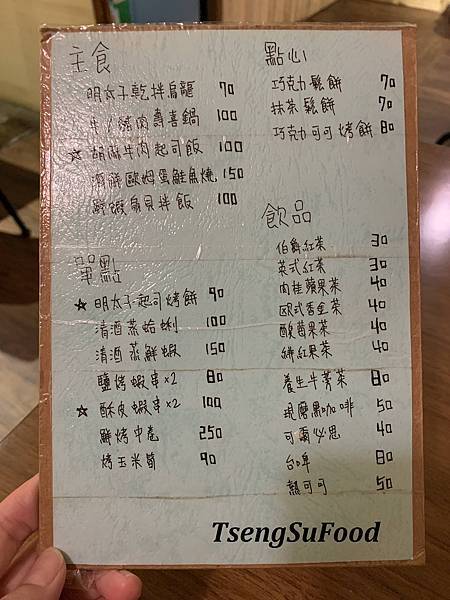 主食
明太子乾拌烏龍 70
牛/豬肉壽喜鍋 100
☆ 胡麻牛肉起司飯 100
歐姆蛋鮭魚燒 150
鮮蝦扇貝拌飯 100
單點
☆ 明太子起司烤餅 90
清酒蒸蛤蜊 100
清酒蒸鮮蝦 150
鹽烤蝦串×2 80
☆ 酥皮蝦串×2 100
鮮烤中卷 250
烤玉米筍 90
點心
巧克力鬆餅 70
抹茶鬆餅 70
巧克力可可烤餅 80
飲品
伯爵紅茶 30
英式紅茶 30
肉桂蘋果茶 40
歐式香金茶 40
酸莓果茶 40
緋紅果茶 40
養生牛蒡茶 80
現磨黑咖啡 50
可爾必思 40
台啤 80
熱可可 50
TsengSuFood